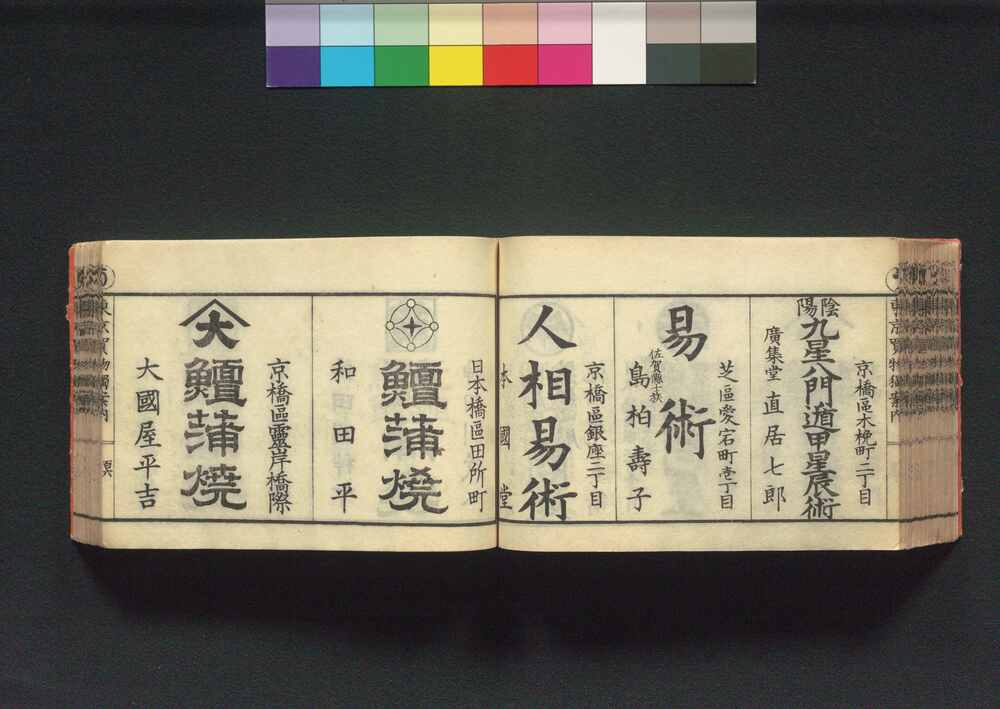 京橋區木挽町二丁目
陰陽九星八門遁甲星辰術
廣集堂 直居七郎
芝區愛宕町壱丁目
易術
佐賀縣士族
島柏壽子
京橋區銀座二丁目
人相易術
本國堂
日本橋區田所町
鱣蒲燒
和田平
京橋區靈岸橋際
大
鱣蒲燒
大國屋平吉